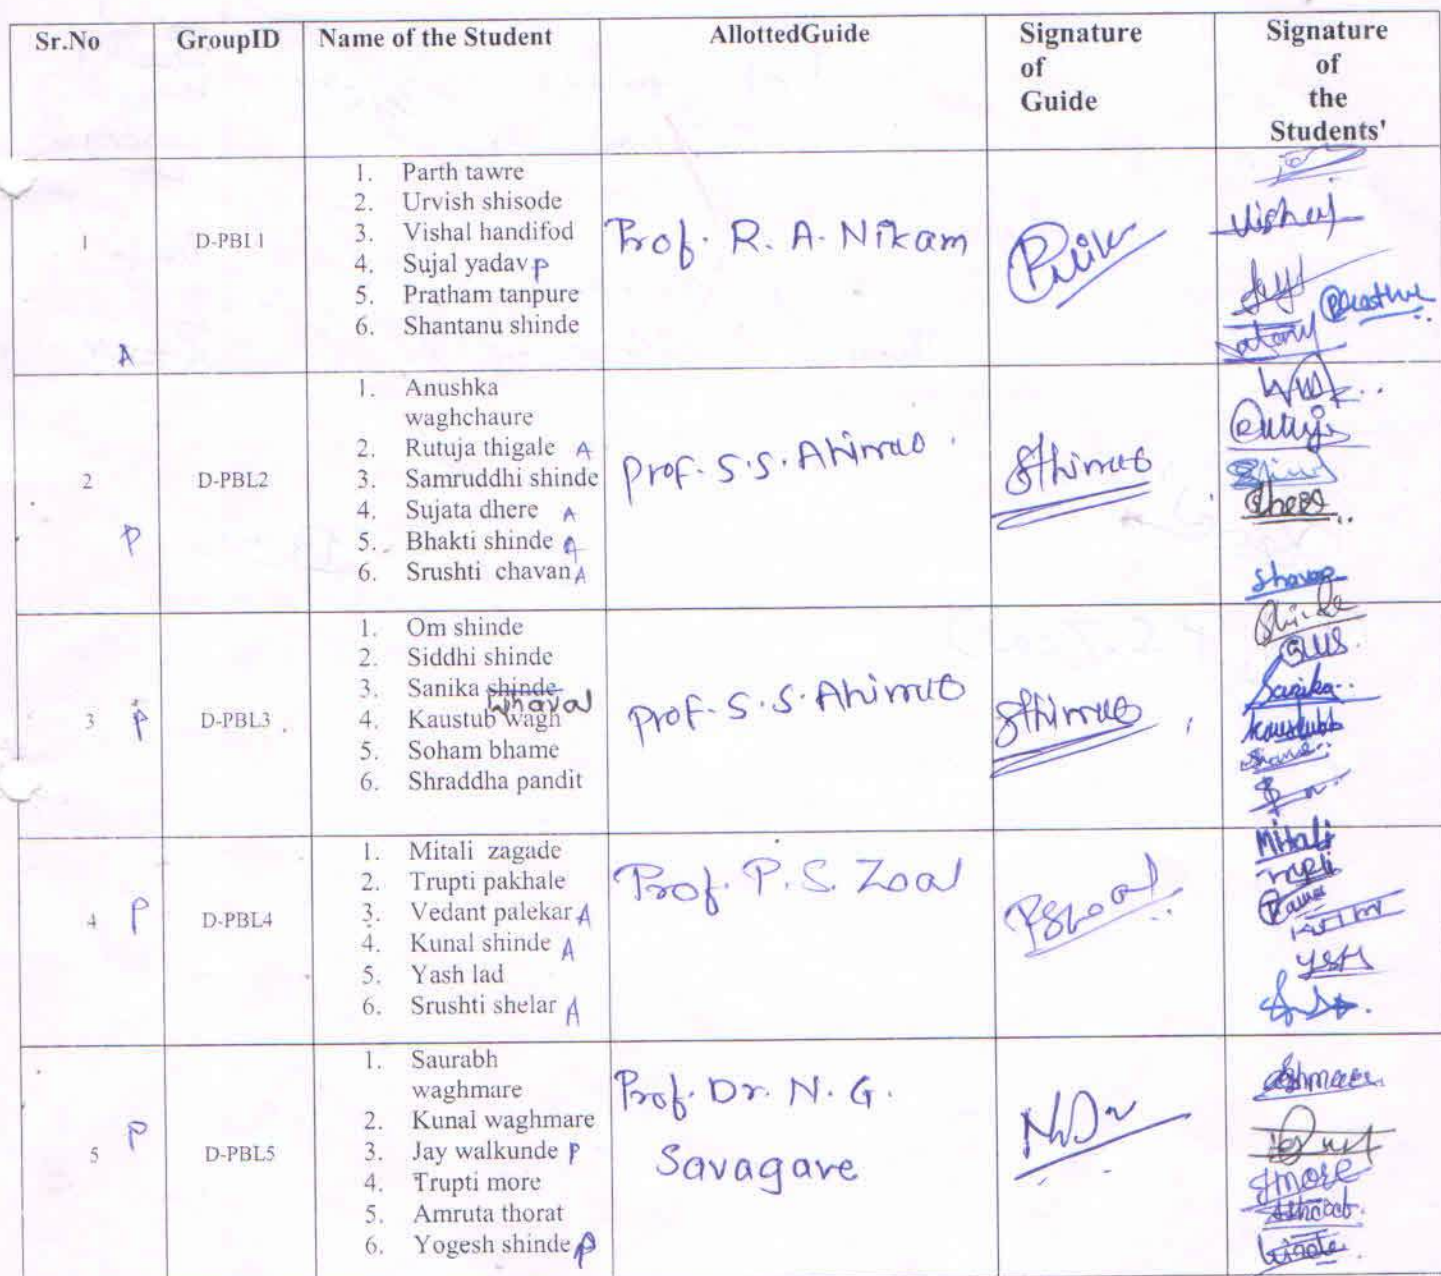 Sr.No GroupID Name of the Student AllottedGuide Signature of Guide Signature of the Students'
1 D-PBL1
1. Parth tawre
2. Urvish shisode
3. Vishal handifod
4. Sujal yadav P
5. Pratham tanpure
6. Shantanu shinde
A
Prof. R. A. Nikam
Vishal
2 D-PBL2
1. Anushka
waghchaure
2. Rutuja thigale A
3. Samruddhi shinde
4. Sujata dhere A
5. Bhakti shinde A
6. Srushti chavan A
P
Prof. S.S. Ahirrao
3 P D-PBL3
1. Om shinde
2. Siddhi shinde
3. Sanika shinde
4. Kaustub wagh
5. Soham bhame
6. Shraddha pandit
Prof. S.S. Ahirrao
Sanika
Kaustubh
4 P D-PBL4
1. Mitali zagade
2. Trupti pakhale
3. Vedant palekar A
4. Kunal shinde A
5. Yash lad
6. Srushti shelar A
Prof. P. S. Zoal
Mitali
Trupti
5 P D-PBL5
1. Saurabh
waghmare
2. Kunal waghmare
3. Jay walkunde P
4. Trupti more
5. Amruta thorat
6. Yogesh shinde P
Prof. Dr. N. G.
Savagave